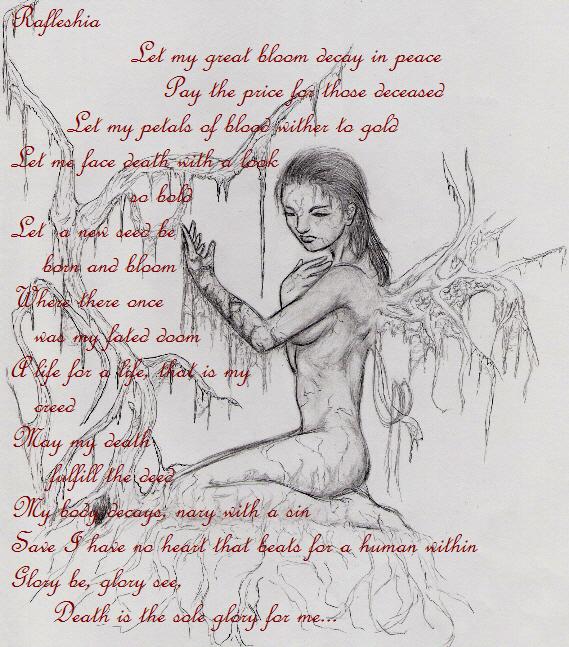 Rafleshia
Let my great bloom decay in peace
Pay the price for those deceased
Let my petals of blood wither to gold
Let me face death with a look
so bold
Let a new seed be
born and bloom
Where there once
was my fated doom
A life for a life, that is my
creed
May my death
fulfill the deed
My body decays, nary with a sin
Save I have no heart that beats for a human within
Glory be, glory see,
Death is the sole glory for me...